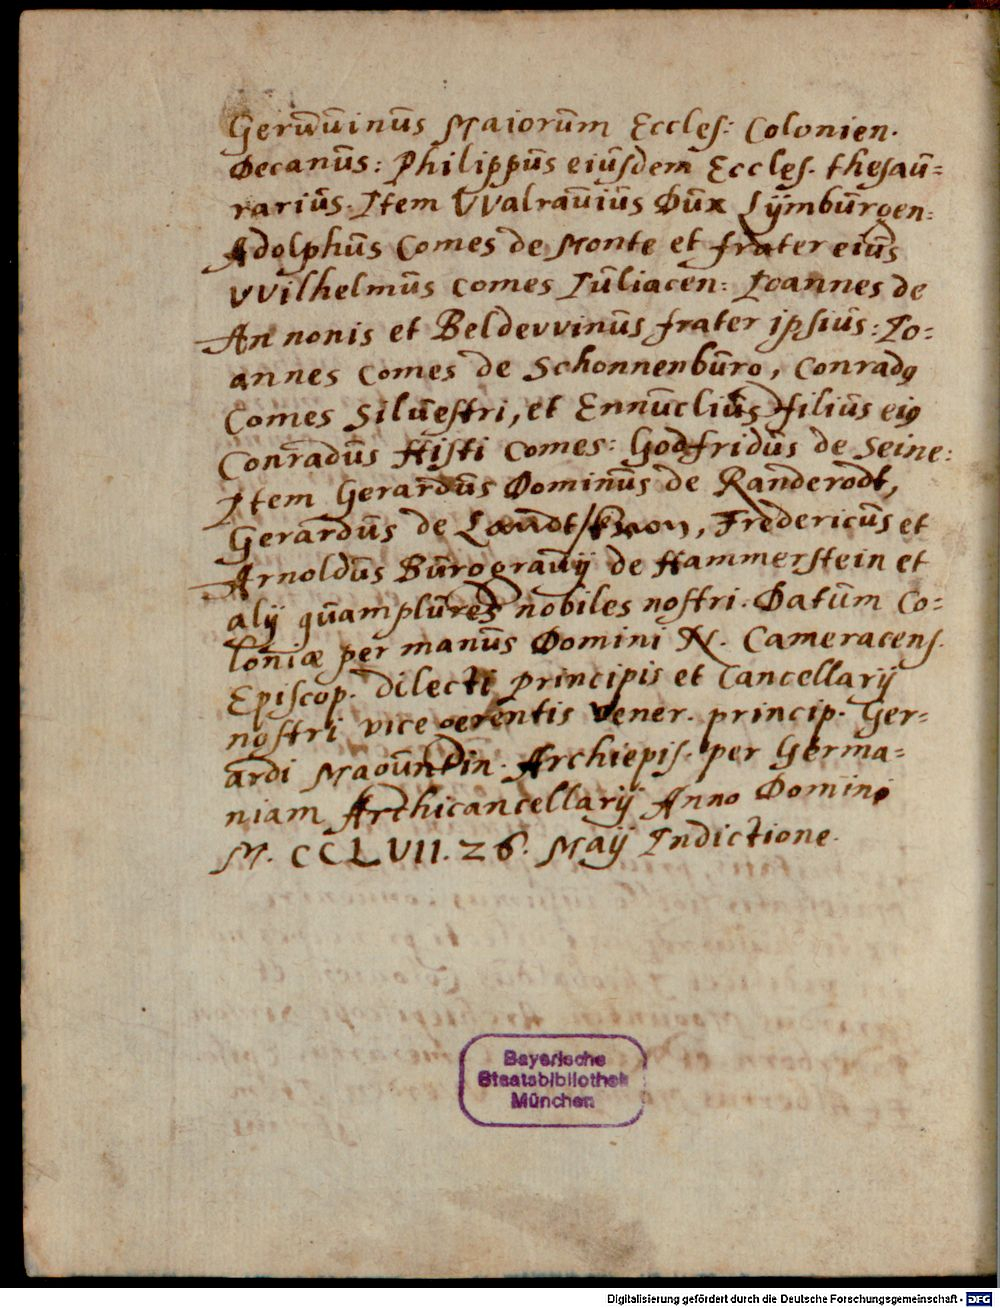 Gerwuinus Maiorum Eccles: Colonien.
Decanus: Philippus eiusdem Eccles. thesau=
rarius. Item VValrauius Dux Lÿmburgen:
Adolphus Comes de Monte et frater eius
VVilhelmus Comes Iuliacen: Ioannes de
Annonis et Beldevvinus frater ipsius: Io=
annes Comes de Schonnenburg, Conradq
Comes Siluestri, et Ennuclius filius eiq
Conradus Histi Comes: Godfridus de Seine:
Item Gerardus Dominus de Randerodt,
Gerardus de Landtskron, Fredericus et
Arnoldus Burggrauij de Hammerstein et
alij quamplures nobiles nostri. Datum Co=
loniæ per manus Domini N. Cameracens.
Episcop. dilecti principis et Cancellarij
nostri vice gerentis vener. princip. Ger=
ardi Maguntin. Archiepis. per Germa=
niam Archicancellarij Anno Domini
M. CCLVII. 26. Maij Indictione.
Bayerische
Staatsbibliothek
München
Digitalisierung gefördert durch die Deutsche Forschungsgemeinschaft - DFG